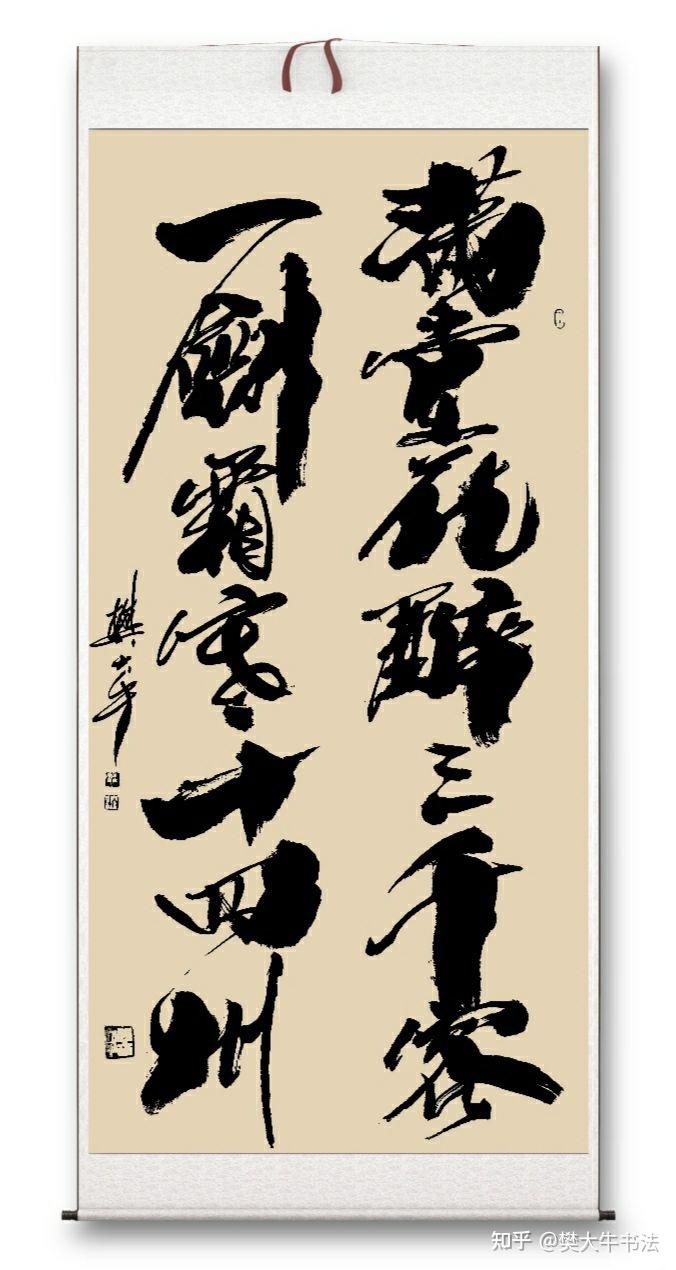 滿堂花醉三千客
一劍霜寒十四州
樊大牛
知乎 @樊大牛书法